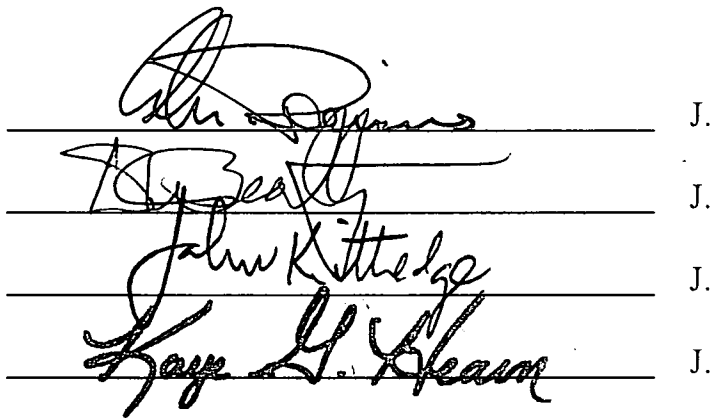 J.
Beatty J.
John Kittredge J.
Kaye G. Hearn J.